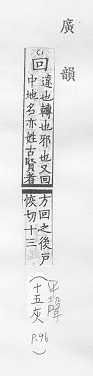 廣韻
C1
回
違也轉也邪也又回
中地名亦姓古賢者
方回之後戶
恢切十三
(平聲
十五灰
P.96)